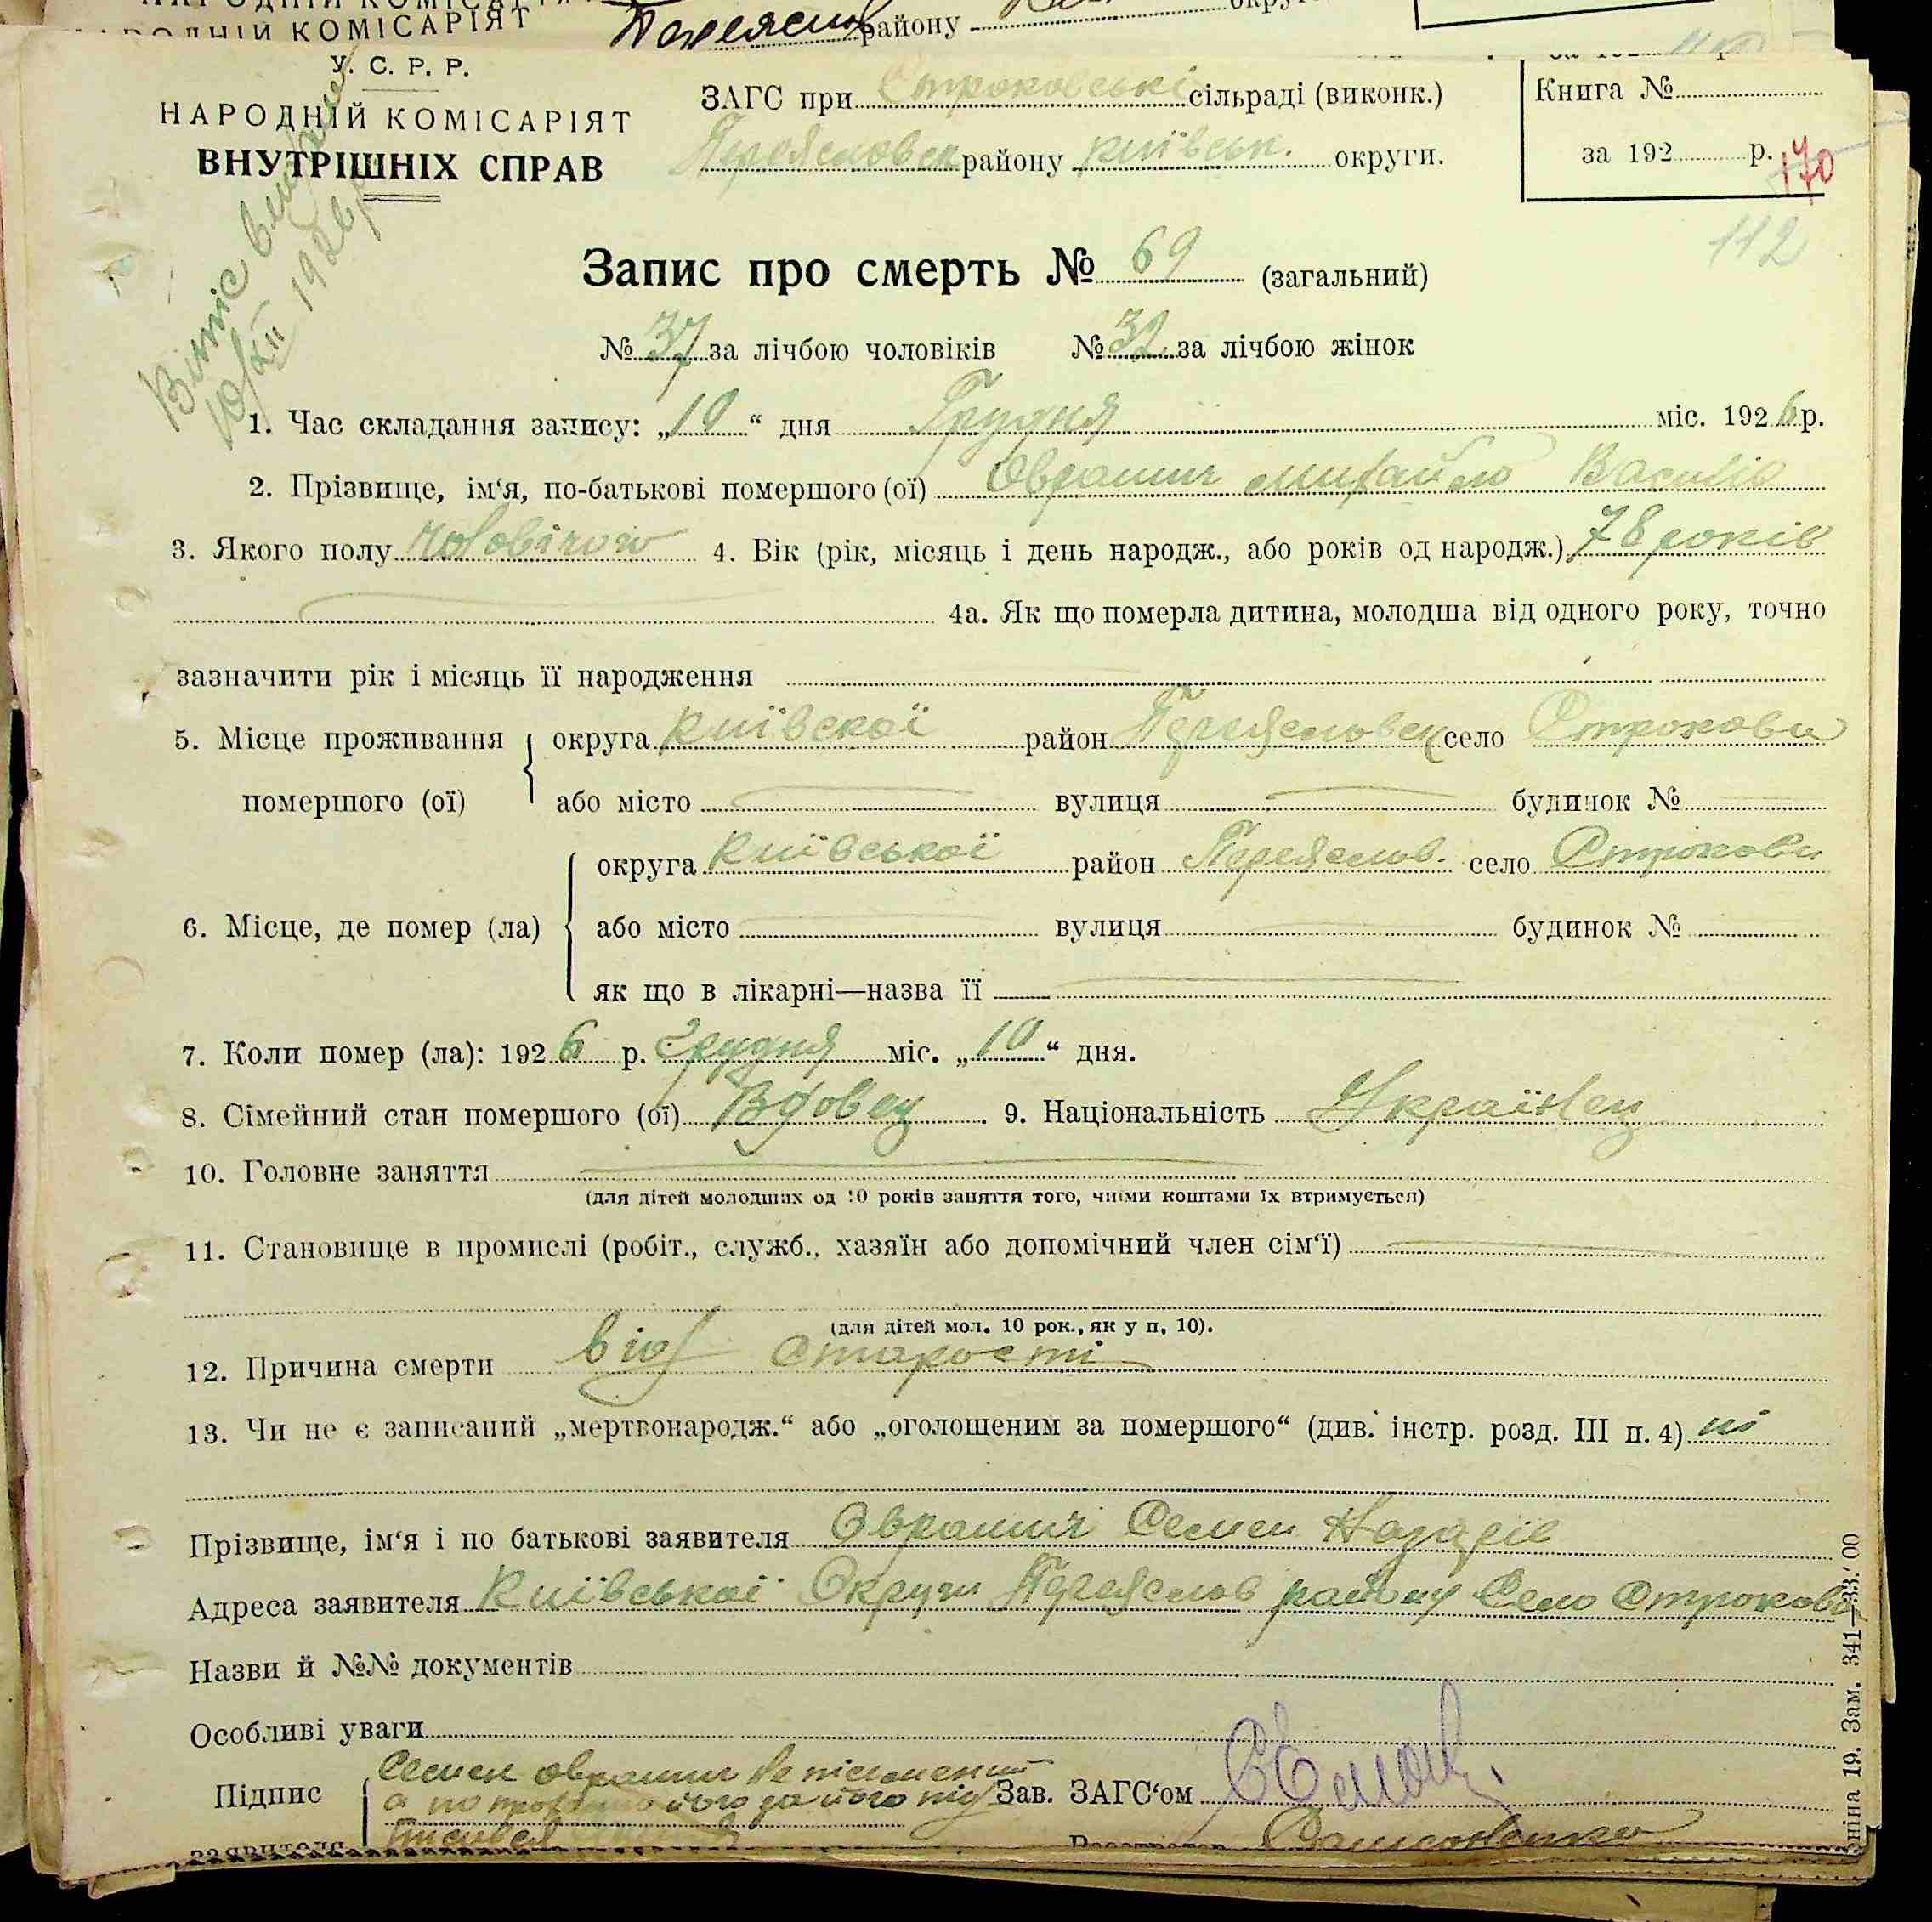 НАРОДНІЙ КОМІСАРІЯТ
району
У. С. Р. Р.
НАРОДНІЙ КОМІСАРІЯТ
ВНУТРІШНІХ СПРАВ
ЗАГС при Строковські сільраді (виконк.)
Переяславськ району київськ. округи.
Книга №
за 192 р.
170
112
Витяг видано
10/XII 1926 р
Запис про смерть № 69 (загальний)
№ 37 за лічбою чоловіків № 32 за лічбою жінок
1. Час складання запису: „10“ дня Грудня міс. 1926 р.
2. Прізвище, ім‘я, по-батькові помершого (ої) Оврашич Михайло Василів
3. Якого полу чоловічого 4. Вік (рік, місяць і день народж., або років од народж.) 78 років
4а. Як що померла дитина, молодша від одного року, точно
зазначити рік і місяць її народження
5. Місце проживання помершого (ої) округа київскої район Переясловск село Строкови
або місто вулиця будинок №
6. Місце, де помер (ла) округа київської район Переяслов. село Строкови
або місто вулиця будинок №
як що в лікарні—назва її
7. Коли помер (ла): 1926 р. грудня міс. „10“ дня.
8. Сімейний стан помершого (ої) Вдовец 9. Національність Українец
10. Головне заняття
(для дітей молодших од 10 років заняття того, чиїми коштами їх втримується)
11. Становище в промислі (робіт., служб., хазяїн або допомічний член сім‘ї)
(для дітей мол. 10 рок., як у п, 10).
12. Причина смерти від старости
13. Чи не є записаний „мертвонародж.“ або „оголошеним за помершого“ (див. інстр. розд. III п. 4) ні
Прізвище, ім‘я і по батькові заявителя Оврашич Семен Назарів
Адреса заявителя Київської Округи Переяслов району Село Строкова
Назви й №№ документів
Особливі уваги
Підпис заявителя Семен Оврашич не писменний
а по його за його під
писався
Зав. ЗАГС‘ом
Реєстратор
Зам. 341—33.'00